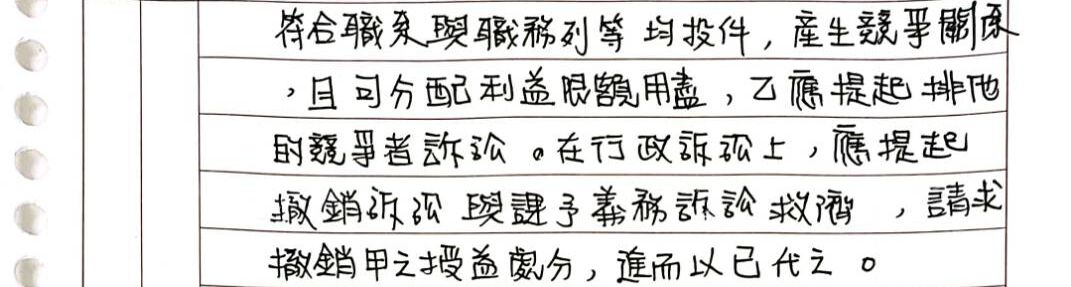 符合職系與職務列等均投件，產生競爭關係
，且可分配利益限額用盡，乙應提起排他
的競爭者訴訟。在行政訴訟上，應提起
撤銷訴訟與課予義務訴訟救濟，請求
撤銷甲之授益處分，進而以已代之。